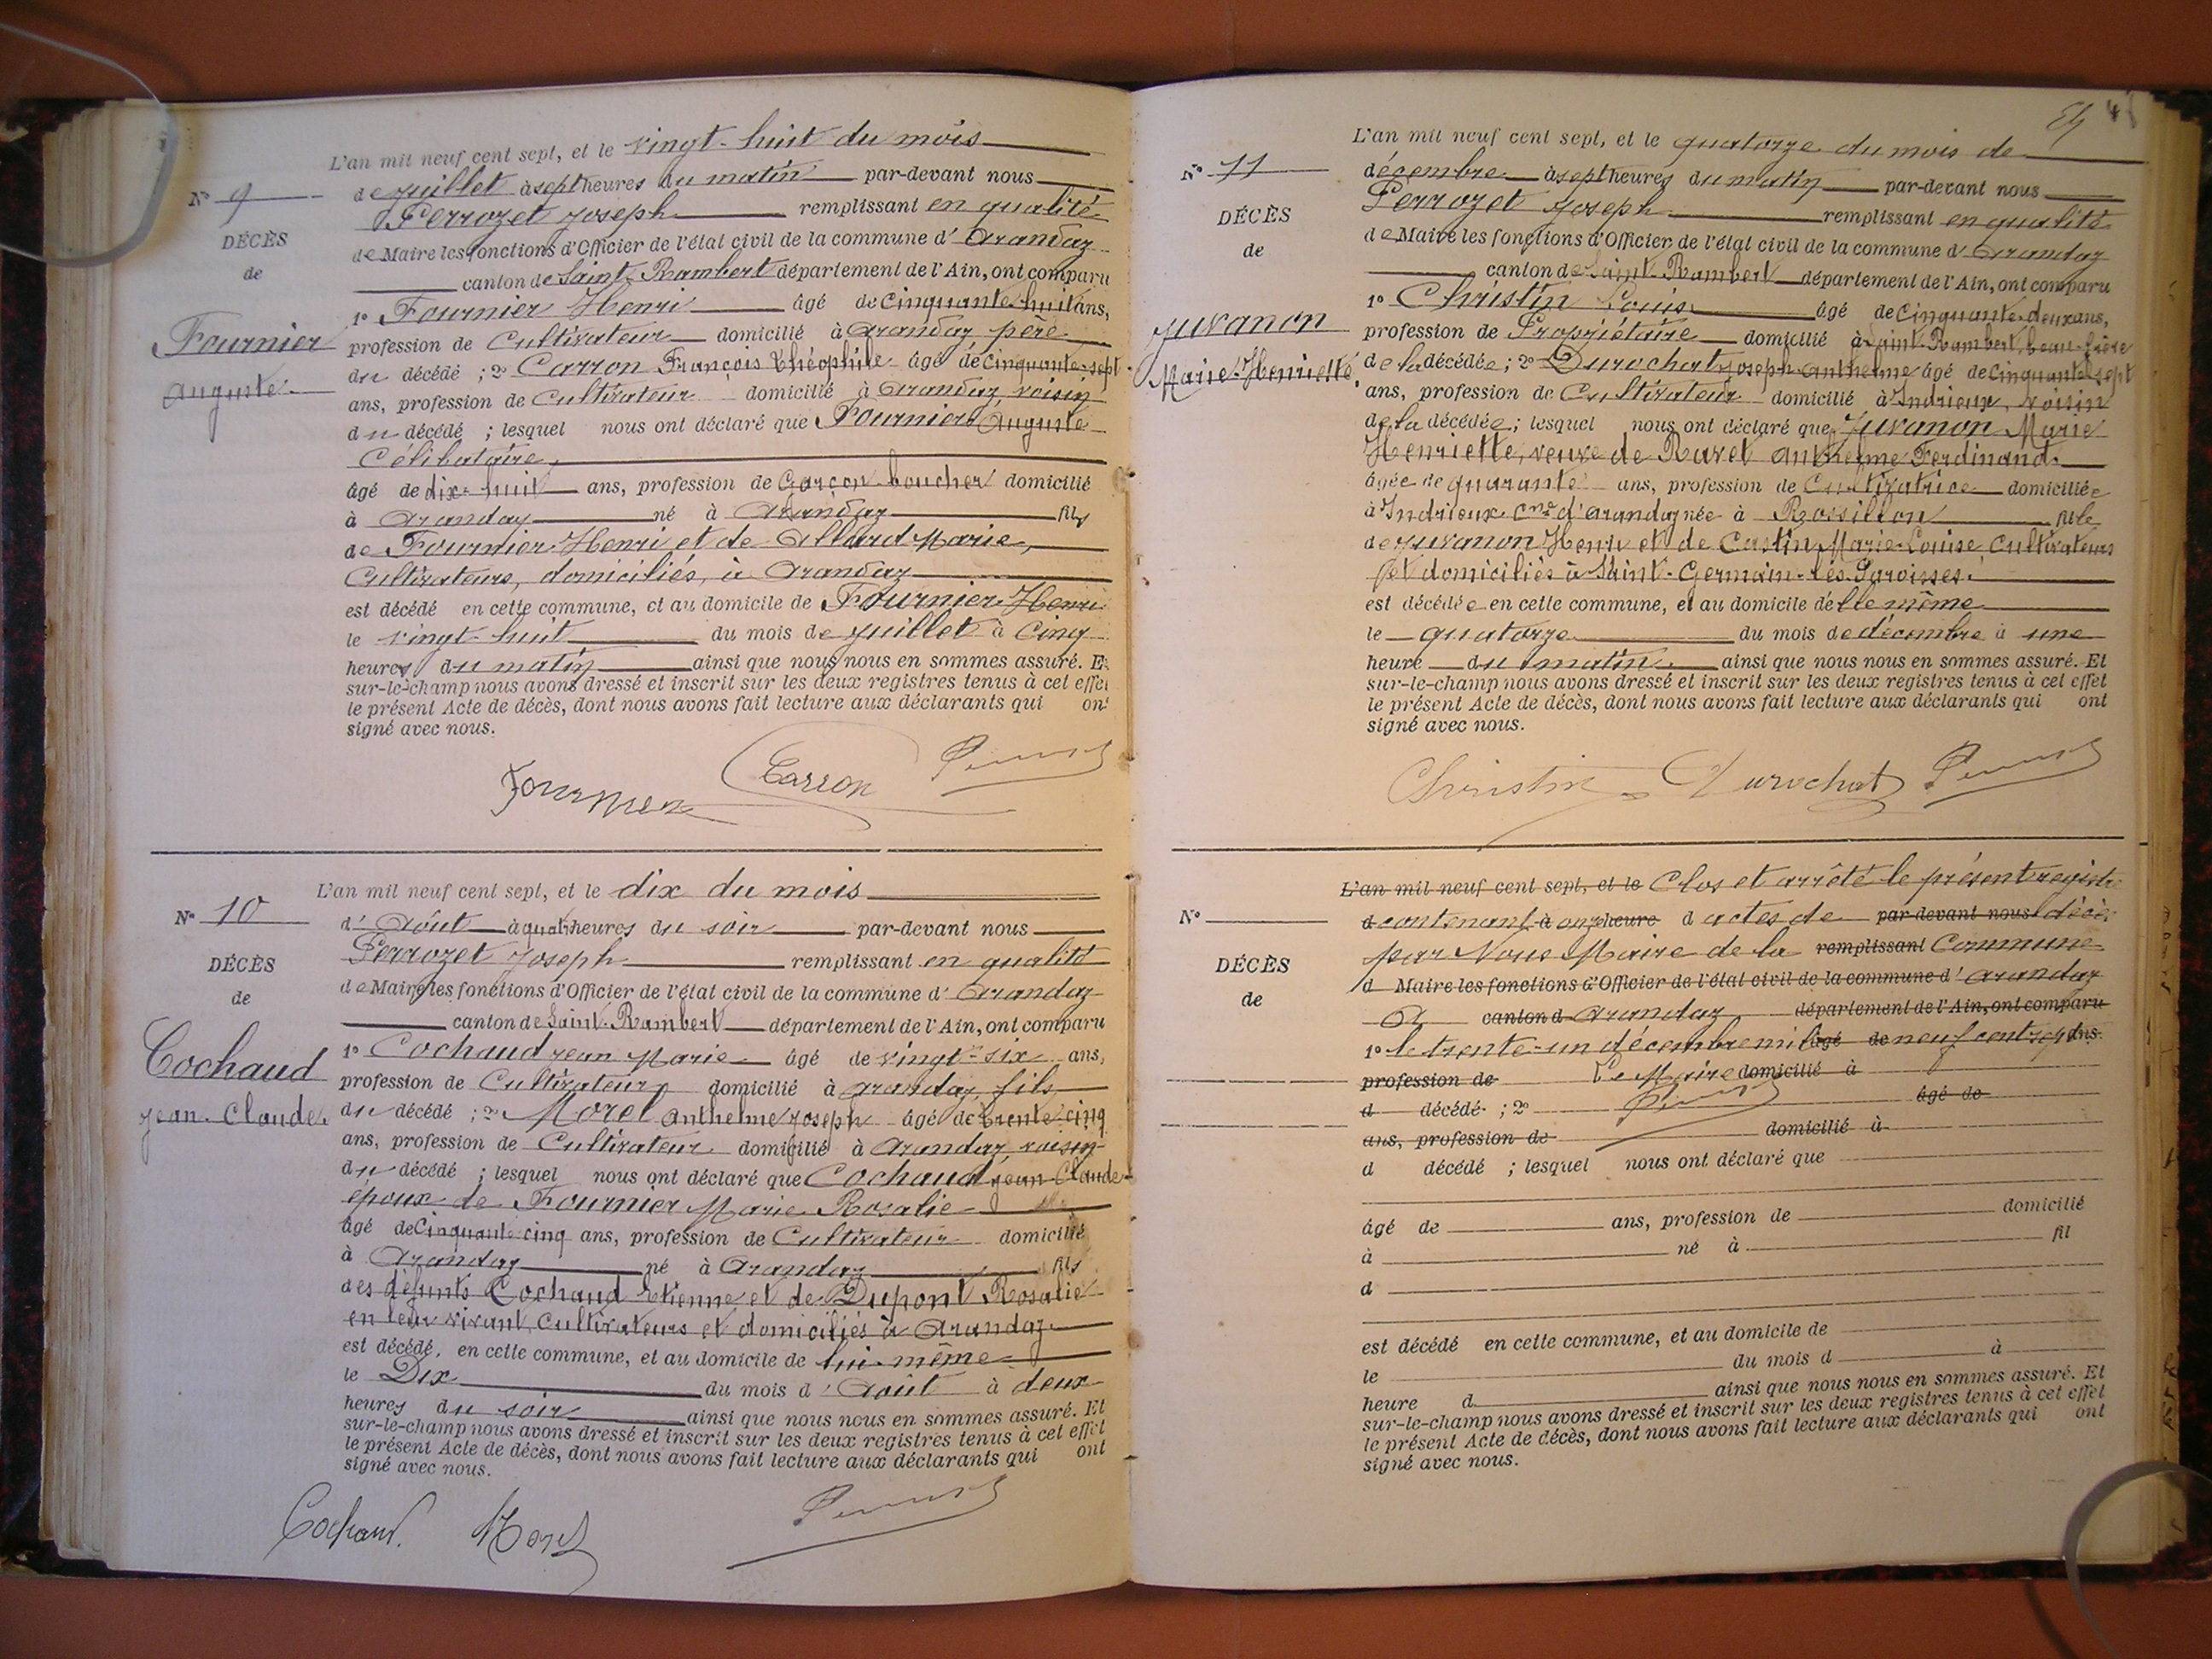 L'an mil neuf cent sept, et le vingt-huit du mois
N° 9
de juillet à sept heures du matin par-devant nous
Perrozet Joseph remplissant en qualité
DÉCÈS
de Maire les fonctions d'Officier de l'état civil de la commune d'Arandaz
de
canton de Saint-Rambert département de l'Ain, ont comparu
1° Fournier Henri âgé de cinquante-huit ans,
Fournier
profession de Cultivateur domicilié à Arandaz, père
du décédé ; 2° Carron François Théophile âgé de cinquante-sept
Auguste
ans, profession de Cultivateur domicilié à Arandaz, voisin
du décédé ; lesquel nous ont déclaré que Fournier Auguste
Célibataire,
âgé de dix-huit ans, profession de Garçon-boucher domicilié
à Arandaz né à Arandaz fils
de Fournier Henri et de Allard Marie,
Cultivateurs, domiciliés, à Arandaz
est décédé en cette commune, et au domicile de Fournier Henri
le vingt-huit du mois de juillet à cinq
heures du matin ainsi que nous nous en sommes assuré. Et
sur-le-champ nous avons dressé et inscrit sur les deux registres tenus à cet effet
le présent Acte de décès, dont nous avons fait lecture aux déclarants qui ont
signé avec nous.
Fournier Carron
L'an mil neuf cent sept, et le dix du mois
N° 10
d'Août à quatre heures du soir par-devant nous
Perrozet Joseph remplissant en qualité
DÉCÈS
de Maire les fonctions d'Officier de l'état civil de la commune d'Arandaz
de
canton de Saint-Rambert département de l'Ain, ont comparu
1° Cochaud Jean Marie âgé de vingt-six ans,
Cochaud
profession de Cultivateur domicilié à Arandaz, fils
Jean-Claude.
du décédé ; 2° Morel Anthelme Joseph âgé de trente-cinq
ans, profession de Cultivateur domicilié à Arandaz, voisin
du décédé ; lesquel nous ont déclaré que Cochaud Jean-Claude
époux de Fournier Marie Rosalie
âgé de cinquante-cinq ans, profession de Cultivateur domicilié
à Arandaz né à Arandaz fils
des défunts Cochaud Etienne et de Dupont Rosalie
en leur vivant Cultivateurs et domiciliés à Arandaz
est décédé, en cette commune, et au domicile de lui-même
le Dix du mois d'Août à deux
heures du soir ainsi que nous nous en sommes assuré. Et
sur-le-champ nous avons dressé et inscrit sur les deux registres tenus à cet effet
le présent Acte de décès, dont nous avons fait lecture aux déclarants qui ont
signé avec nous.
Cochaud. Morel
L'an mil neuf cent sept, et le quatorze du mois de
N° 11
décembre à sept heures du matin par-devant nous
Perrozet Joseph remplissant en qualité
DÉCÈS
de Maire les fonctions d'Officier de l'état civil de la commune d'Arandaz
de
canton de Saint-Rambert département de l'Ain, ont comparu
1° Christin Louis âgé de cinquante-deux ans,
Juvanon
profession de Propriétaire domicilié à Saint-Rambert, beau-frère
Marie-Henriette
de la décédée ; 2° Durochat Joseph Anthelme âgé de cinquante-sept
ans, profession de Cultivateur domicilié à Indrieux, voisin
de la décédée ; lesquel nous ont déclaré que Juvanon Marie
Henriette, veuve de Ravet Anthelme Ferdinand
âgée de quarante ans, profession de Cultivatrice domiciliée
à Indrieux cne d'Arandaz née à Rossillon fille
de Juvanon Henri et de Castin Marie-Louise Cultivateurs
et domiciliés à Saint-Germain-les-Paroisses.
est décédée en cette commune, et au domicile d'elle même
le quatorze du mois de décembre à une
heure du matin. ainsi que nous nous en sommes assuré. Et
sur-le-champ nous avons dressé et inscrit sur les deux registres tenus à cet effet
le présent Acte de décès, dont nous avons fait lecture aux déclarants qui ont
signé avec nous.
Christin Durochat
L'an mil neuf cent sept, et le Clos et arrêté le présent registre
N°
d contenant à onze heure d actes de par-devant nous décès
par Nous Maire de la remplissant Commune
DÉCÈS
d Maire les fonctions d'Officier de l'état civil de la commune d'Arandaz
de
A canton d Arandaz département de l'Ain, ont comparu
1° le trente-un décembre mil âgé de neuf cent sept ans.
profession de Le Maire domicilié à
d décédé ; 2° âgé de
ans, profession de domicilié à
d décédé ; lesquel nous ont déclaré que
âgé de ans, profession de domicilié
à né à fil
d
est décédé en cette commune, et au domicile de
le du mois d à
heure d ainsi que nous nous en sommes assuré. Et
sur-le-champ nous avons dressé et inscrit sur les deux registres tenus à cet effet
le présent Acte de décès, dont nous avons fait lecture aux déclarants qui ont
signé avec nous.